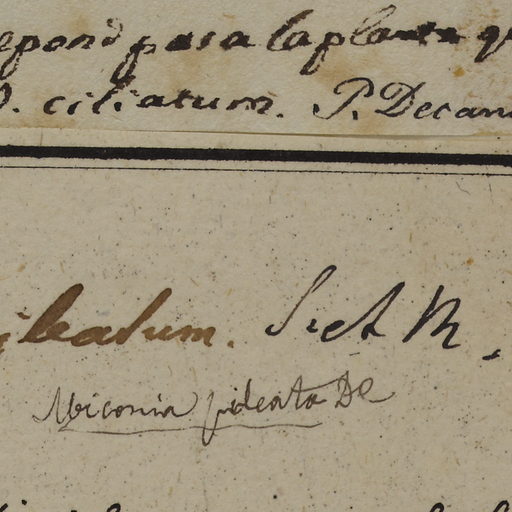 epond pas a la planta q
. ciliatum. P. Decan
ileatum. Sect M.
Miconia pileata DC